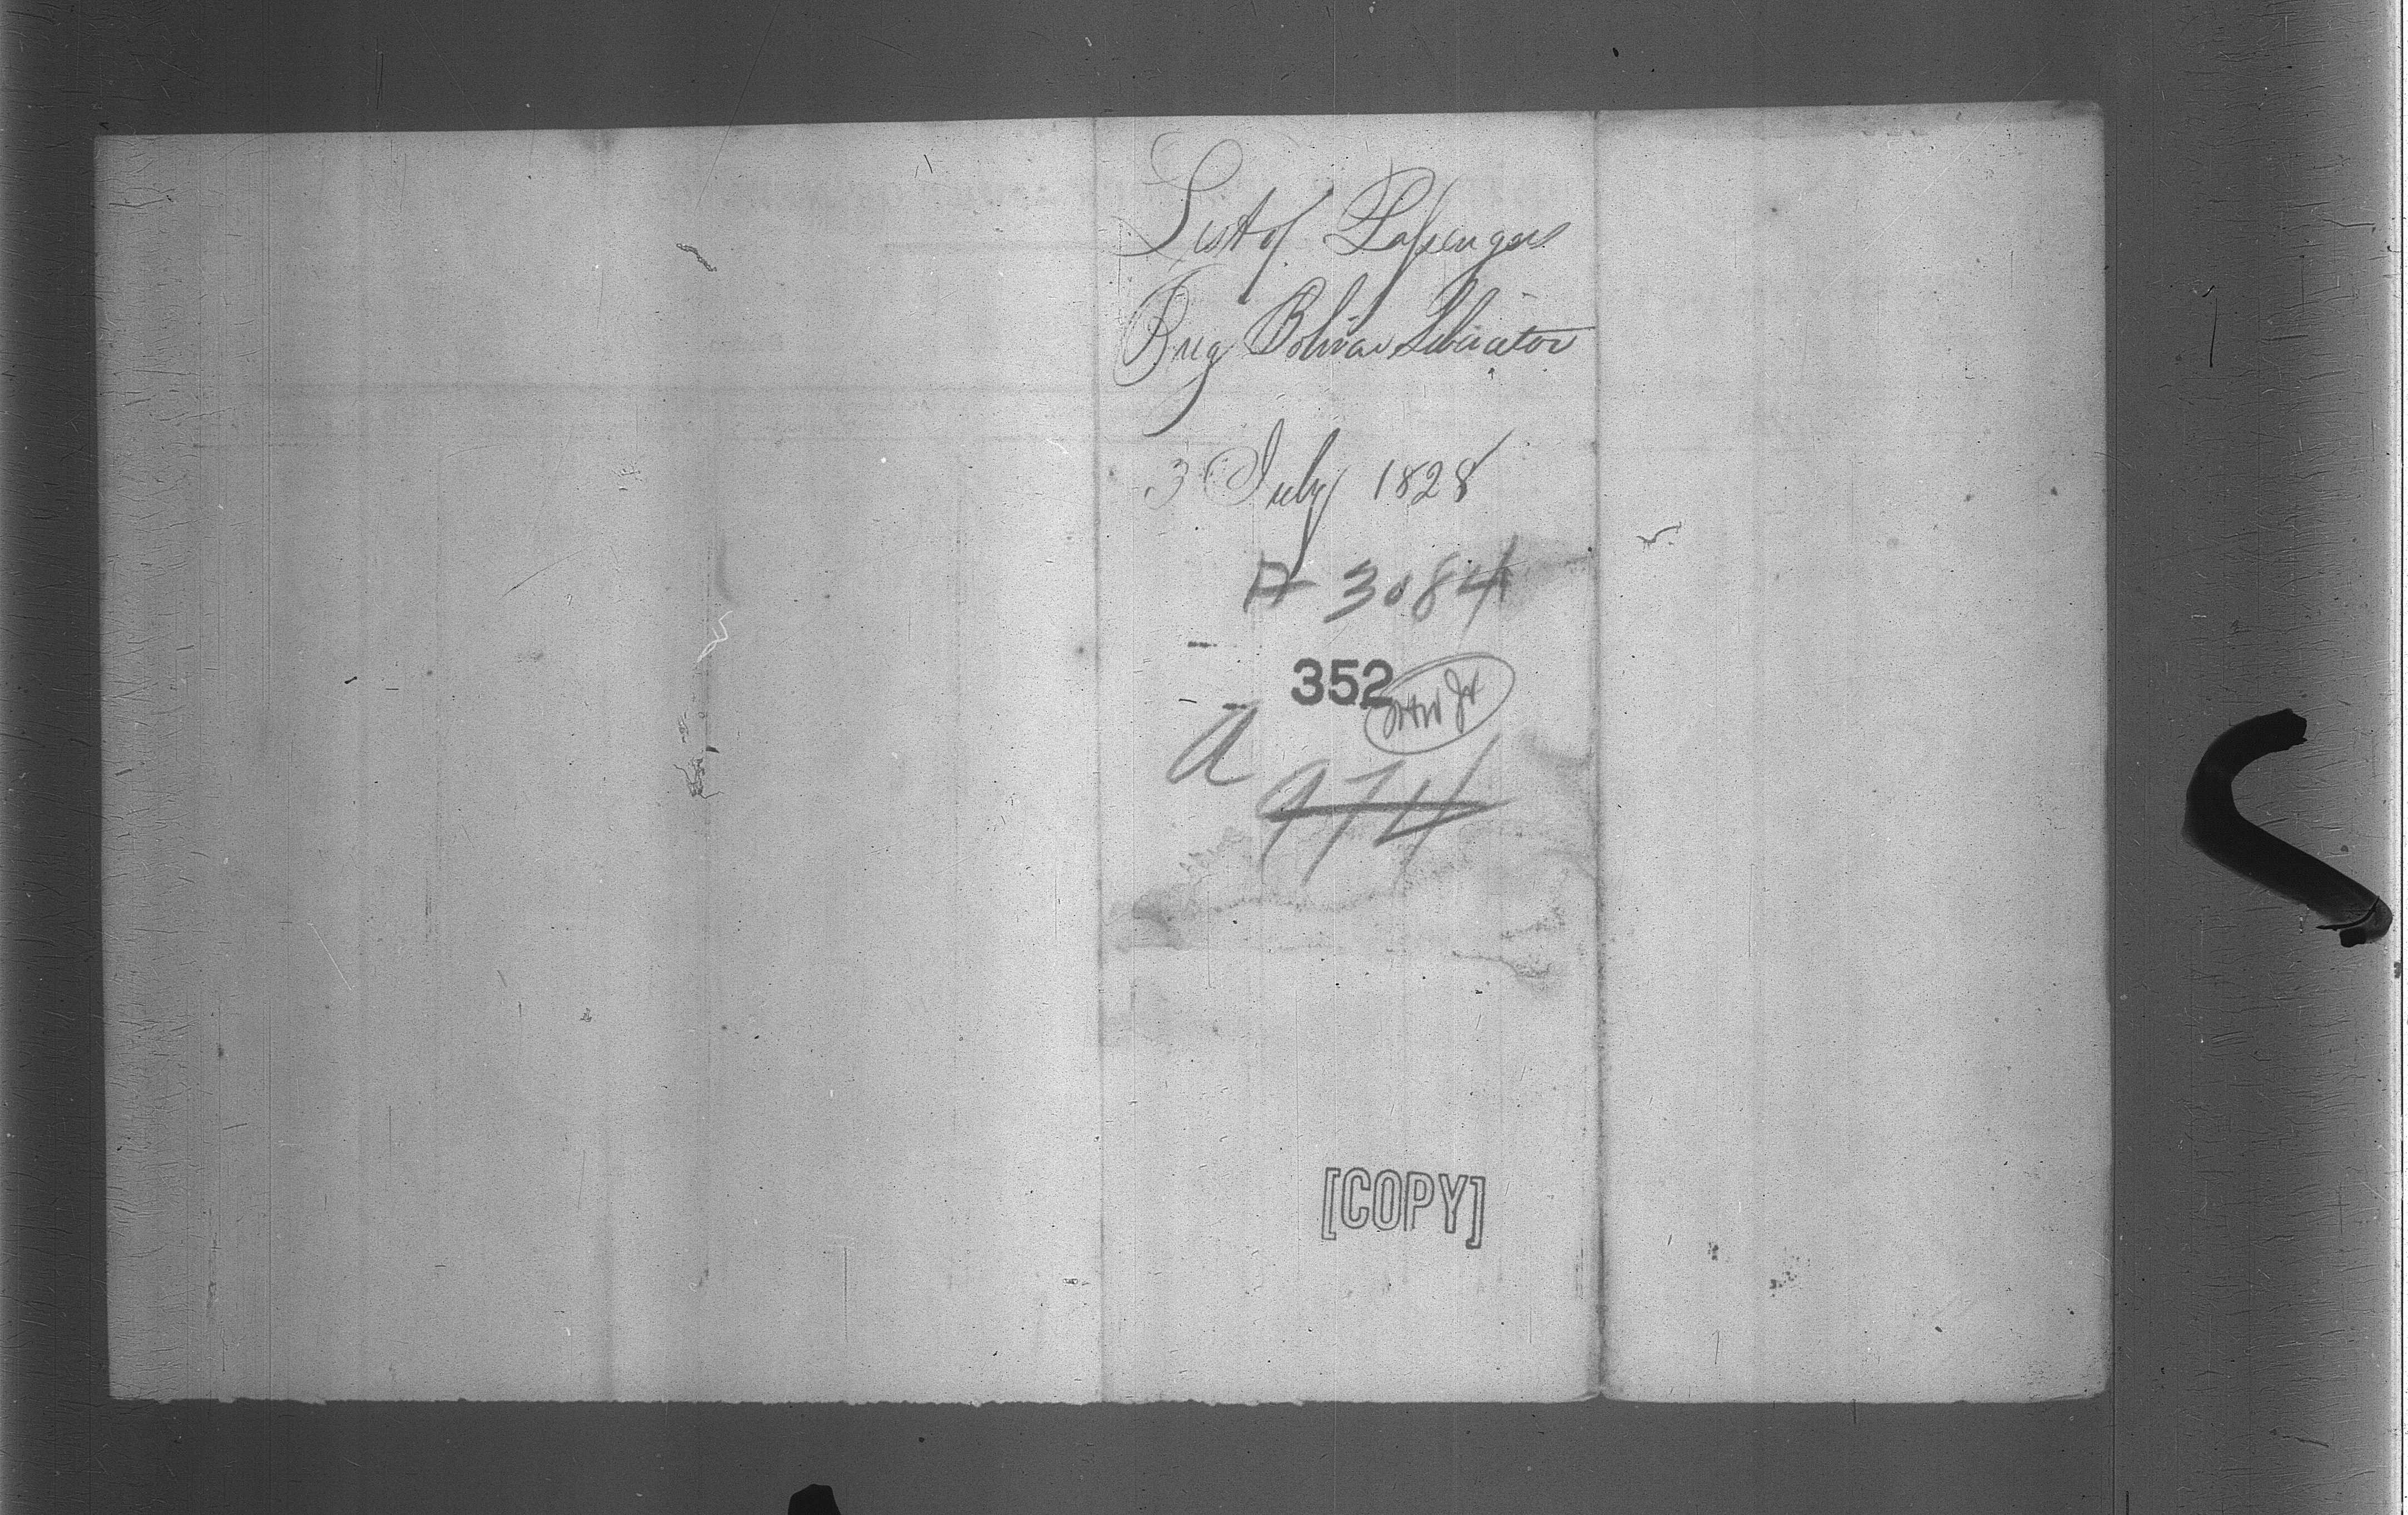 List of Passengers
Brig Bolivar Liberator
3 July 1828
A 3084
352
A
974
[COPY]